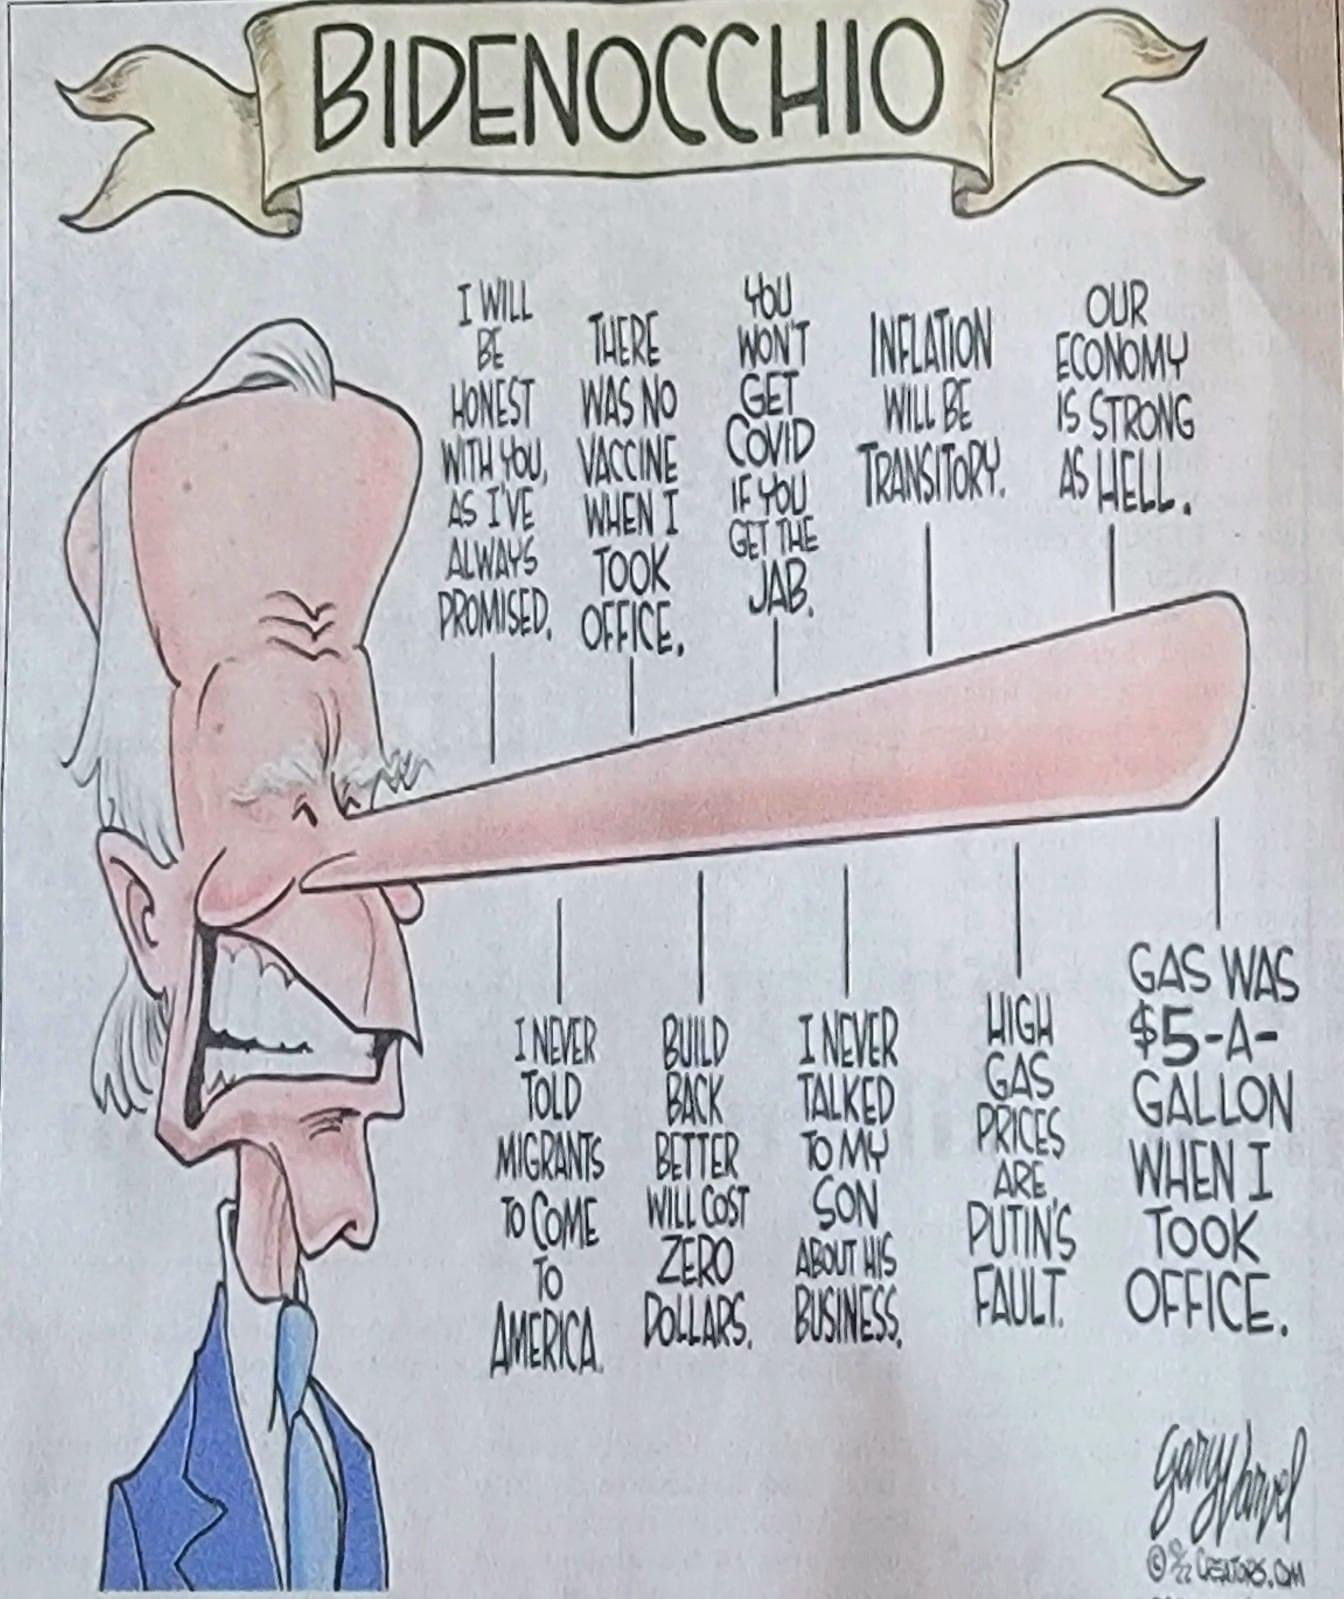 BIDENOCCHIO
I WILL
BE
HONEST
WITH YOU,
AS I'VE
ALWAYS
PROMISED.
THERE
WAS NO
VACCINE
WHEN I
TOOK
OFFICE.
YOU
WON'T
GET
COVID
IF YOU
GET THE
JAB.
INFLATION
WILL BE
TRANSITORY.
OUR
ECONOMY
IS STRONG
AS HELL.
I NEVER
TOLD
MIGRANTS
TO COME
TO
AMERICA.
BUILD
BACK
BETTER
WILL COST
ZERO
DOLLARS.
I NEVER
TALKED
TO MY
SON
ABOUT HIS
BUSINESS.
HIGH
GAS
PRICES
ARE
PUTIN'S
FAULT.
GAS WAS
$5-A-
GALLON
WHEN I
TOOK
OFFICE.
Gary Varvel
© CREATORS.COM